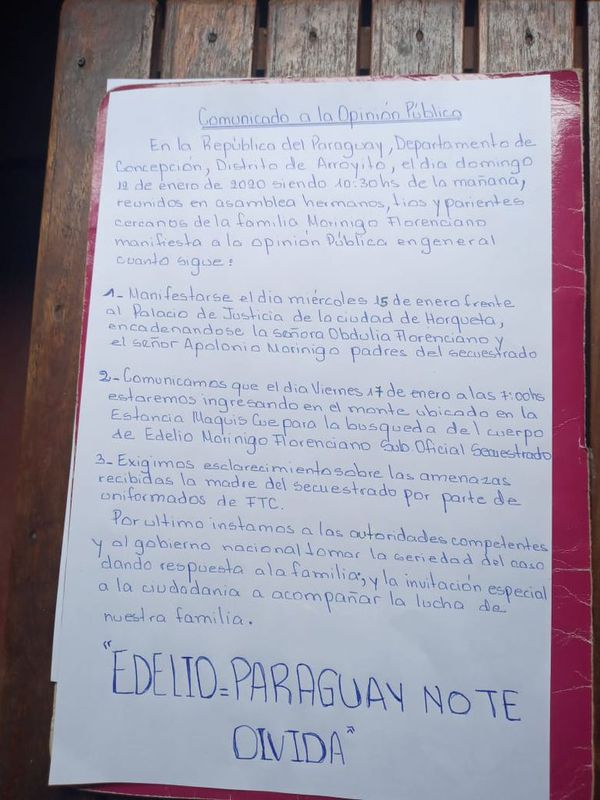 Comunicado a la Opinión Público
En la República del Paraguay, Departamento de
Concepción, Distrito de Arroyito, el dia domingo
12 de enero de 2020 siendo 10:30hs de la mañana,
reunidos en asamblea hermanos, tios y parientes
cercanos de la familia Morinigo Florenciano
manifiesta a la opinión Pública en general
cuanto sigue:
1- Manifestarse el dia miércoles 15 de enero frente
al Palacio de Justicia de la ciudad de Horqueta,
encadenandose la señora Obdulia Florenciano y
el señor Apolonio Morinigo padres del secuestrado
2- Comunicamos que el dia Viernes 17 de enero a las 7:00hs
estaremos ingresando en el monte ubicado en la
Estancia Maquis Cue para la busqueda del cuerpo
de Edelio Morinigo Florenciano Sub Oficial Secuestrado
3- Exigimos esclarecimiento sobre las amenazas
recibidas la madre del secuestrado por parte de
uniformados de FTC.
Por ultimo instamos a las autoridades competentes
y al gobierno nacional tomar la seriedad del caso
dando respuesta a la familia, y la invitación especial
a la ciudadania a acompañar la lucha de
nuestra familia.
"EDELIO=PARAGUAY NO TE
OLVIDA"